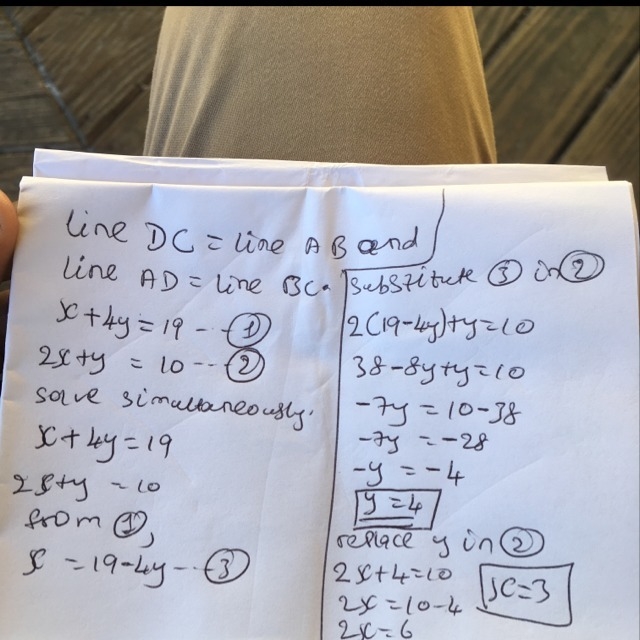 line DC = line AB and
line AD = line BC.
x + 4y = 19 -- ①
2x + y = 10 -- ②
solve simultaneously.
x + 4y = 19
2x + y = 10
from ①,
x = 19 - 4y -- ③
substitute ③ in ②
2(19 - 4y) + y = 10
38 - 8y + y = 10
-7y = 10 - 38
-7y = -28
-y = -4
y = 4
replace y in ②
2x + 4 = 10
2x = 10 - 4
2x = 6
x = 3